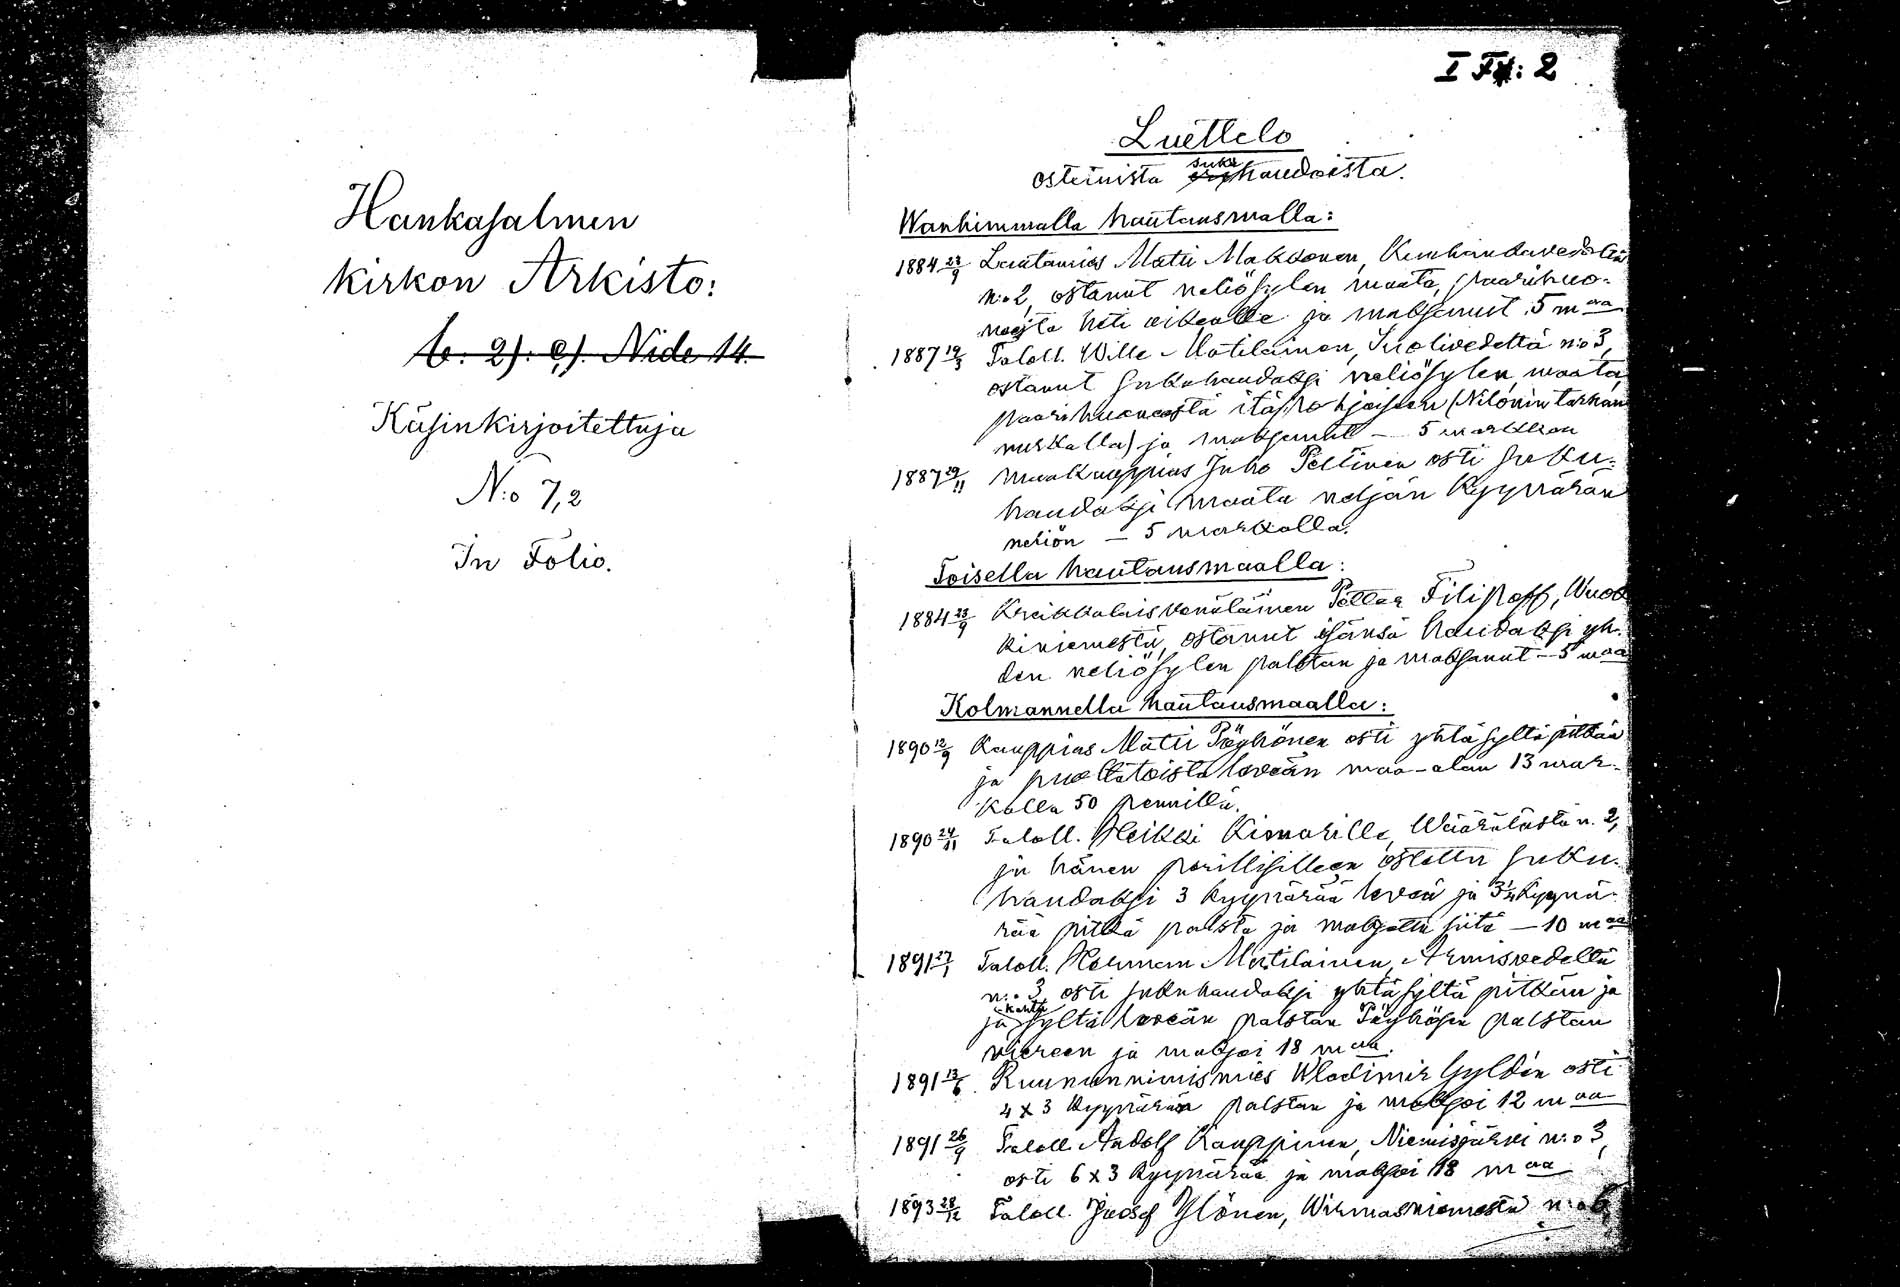 Hankasalmen
kirkon Arkisto:
b: 2): c). Nide 14.
Käsinkirjoitettuja
N:o 7,2
In Folio.
I : 2
Luettelo
suku
ostetuista haudoista.
Wanhimmalla hautausmalla:
1884 23/9 Lautamies Matti Makkonen,
n:o 2, ostanut neliösylen maata, paarihuo-
neesta heti oikealle ja maksanut 5 maa
1887 19/3 Taloll. Wille Matilainen, Suolivedeltä n:o 3,
ostanut sukuhaudaksi neliösylen maata,
paarihuoneesta itäpohjoiseen (Nilonin tarhan
nurkalla) ja maksanut — 5 markkaa
1887 29/11 Maakauppias Juho Peltinen osti suku-
haudaksi maata neljän kyynärän
neliön — 5 markalla.
Toisella hautausmaalla:
1884 23/9 Kreikkalaisvenäläinen Petter Filipoff, Wuok
kiniemestä, ostanut isänsä haudaksi yh-
den neliösylen palstan ja maksanut — 5 maa
Kolmannella hautausmaalla:
1890 12/9 Kauppias Matti Pöyhönen osti yhtä syltä pitkän
ja puoltatoista leveän maa-alan 13 mar-
kalla 50 pennillä.
1890 24/11 Taloll. Heikki Kimarille, Wäärälästä n. 2,
ja hänen perillisilleen ostettu suku-
haudaksi 3 kyynärää leveä ja 3 1/4 kyynä-
rää pitkä palsta ja maksettu siitä — 10 maa
1891 27/1 Taloll. Herman Matilainen, Armisvedeltä
n:o 3 osti sukuhaudaksi yhtä syltä pitkän ja
kahta
ja syltä leveän palstan Pöyhösen palstan
viereen ja maksoi 18 maa.
1891 13/6. Ruununnimismies Wladimir Gyldén osti
4 x 3 kyynärän palstan ja maksoi 12 maa
1891 26/9 Taloll. Kauppinen, Niemisjärvi n:o 3,
osti 6 x 3 kyynärää ja maksoi 18 maa
1893 28/12 Taloll. Josef Ylönen, Wirmasniemestä n:o 6,